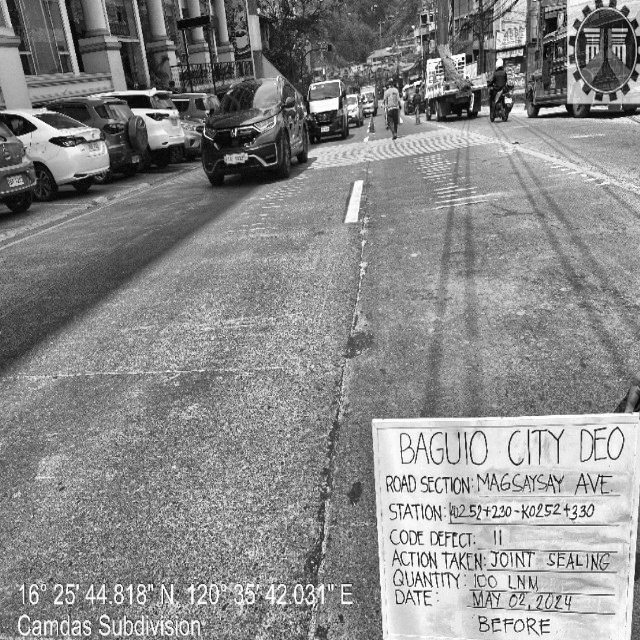 BAGUIO CITY DEO
ROAD SECTION: MAGSAYSAY AVE.
STATION: K0252+230-K0252+330
CODE DEFECT: 11
ACTION TAKEN: JOINT SEALING
QUANTITY: 100 LNM
DATE: MAY 02, 2024
BEFORE
16° 25' 44.818" N, 120° 35' 42.031" E
Camdas Subdivision